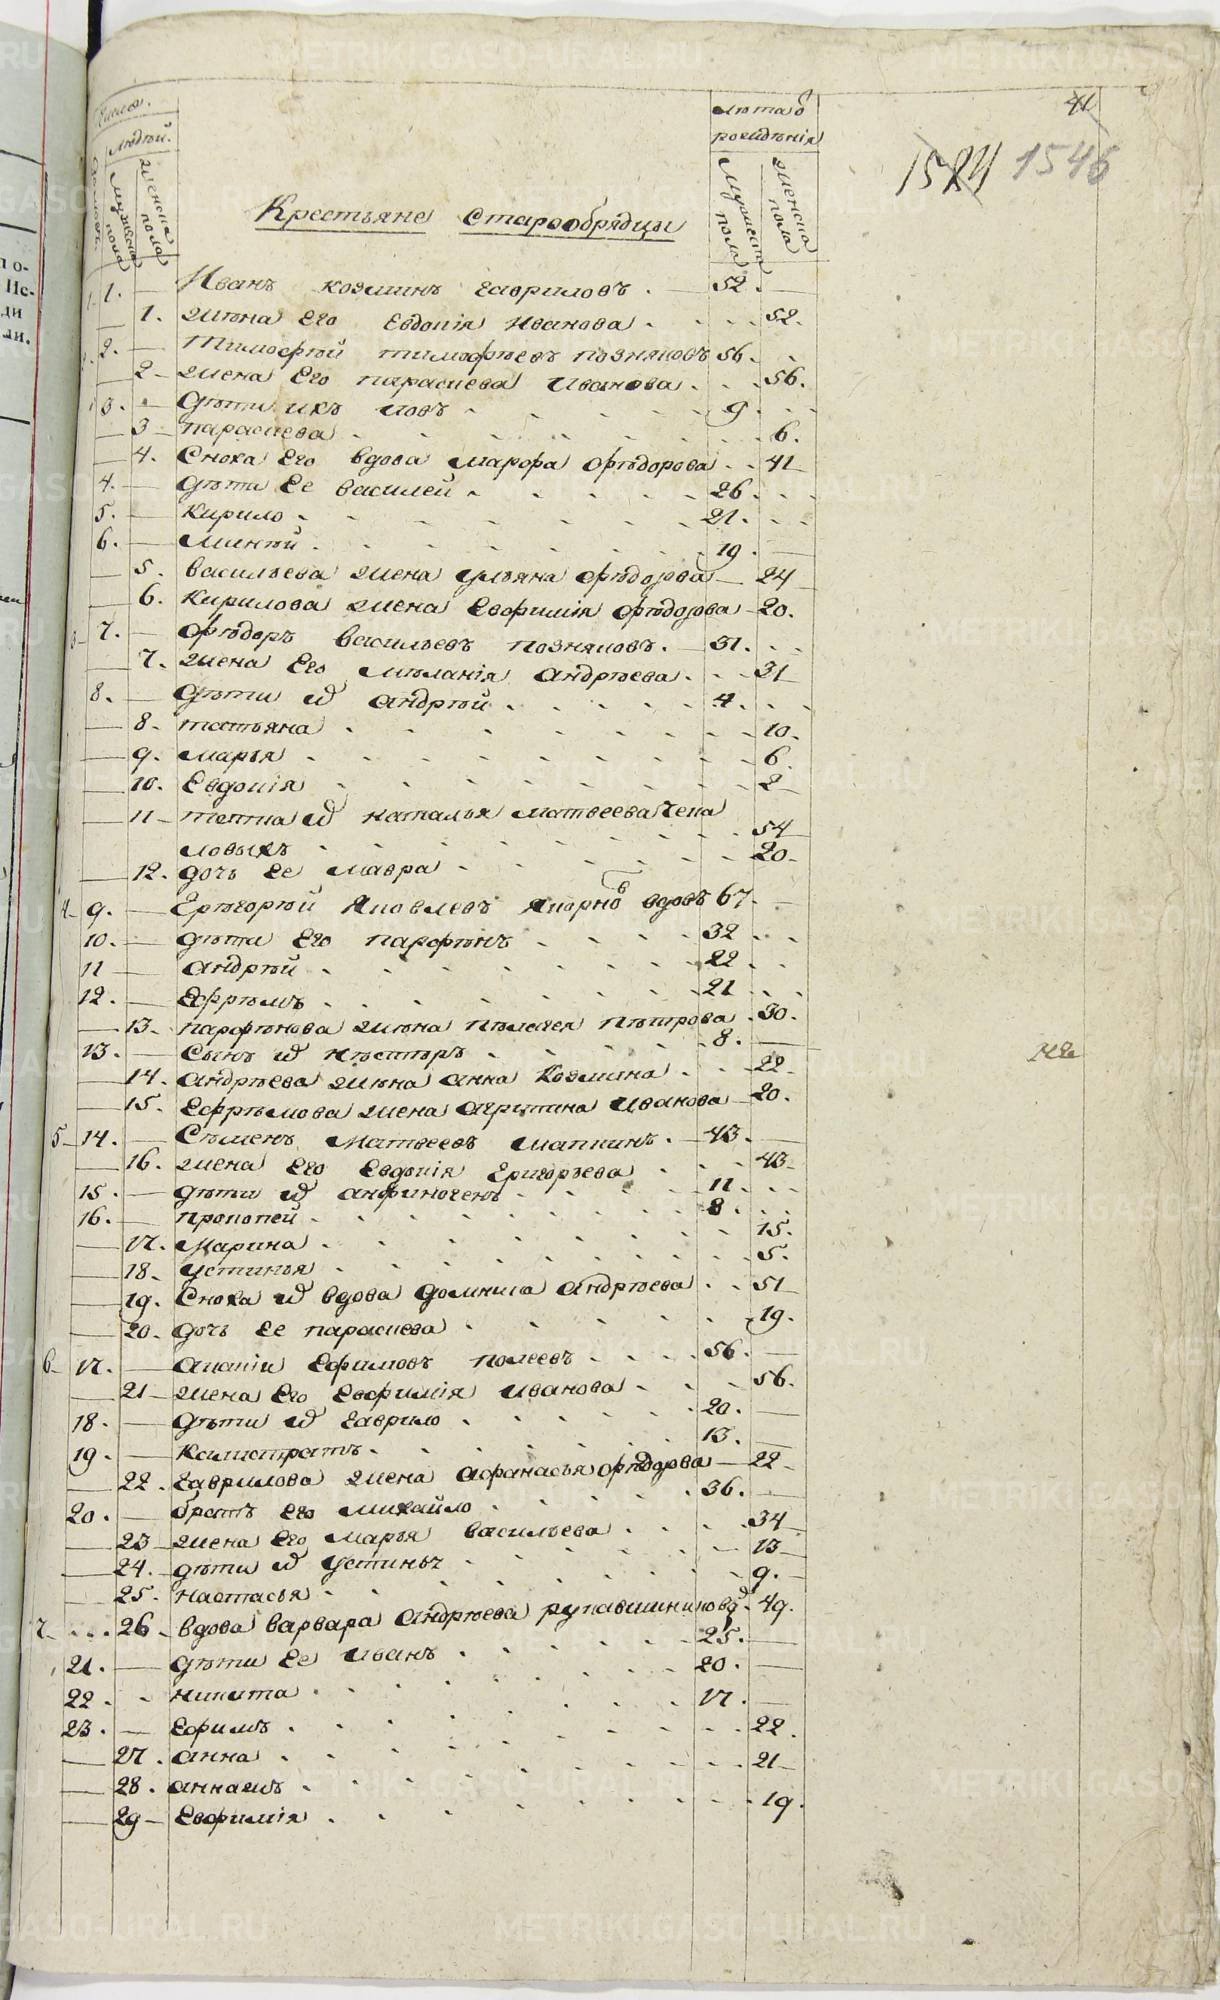 Числа.
людей.
лѣта ѿ
рожденія
41
1524 1546
домовъ.
мужеска пола
женска пола
мужеска пола
женска пола
Крестьяне Старообрядцы
1. 1. Иванъ Козминъ Гавриловъ. 52.
1. жена Его Евдокія Иванова. 52.
2. 2. Тимофѣй Тимофѣевъ Позняковъ 56.
2 жена Его Парасκева Иванова. 56.
3. дѣти ихъ Иовъ 9.
3 Параскева 6.
4. Сноха Его вдова Марфа Ѳедорова 41
4. дѣти Ее Василей 26
5. Кирило 21.
6. Минѣй 19.
5. Васильева жена Ульяна Ѳедорова 24
6. Кирилова жена Евфимія Ѳедорова 20.
3 7. Ѳедоръ Васильевъ Позняковъ. 31.
7. жена Его Меланія Андрѣева. 31
8. дѣти их Андрѣй 4.
8. Татьяна 10.
9. Марья 6.
10. Евдокія 2
11 тетка их Наталья Матвеева Чека
ловыхъ 54
12. дочь Ее Мавра 20
4 9. Григорѣй Яковлевъ вдовъ 67.
10. дѣти Его Парфенъ 32
11 Андрѣй 22
12. Ефремъ 21
13. Парфенова жена Пелагея Петрова 30.
13. Сынъ их Нестеръ 8.
14. Андрѣева жена Анна Козмина 22
15. Ефремова жена Агрипина Иванова 20.
5 14. Семенъ Матвеевъ Шапкинъ. 43.
16. жена Его Евдокія Григорьева 43
15. дѣти их Анфиногенъ 11
16. Прокопей 8
17. Марина 15.
18. Устинья 5.
19. Сноха их вдова Домника Андрѣева 51
20. дочь Ее Параскева 19.
6 17. Ананій Ефимовъ Полеевъ 56.
21 жена Его Евфимія Иванова 56.
18. дѣти их Гаврило 20.
19. Калистратъ 13.
22. Гаврилова жена Афанасья Ѳедорова 22
20. братъ Его Михайло 36.
23 жена Его Марья Васильева 34
24. дѣти их Устинья 13
25. Настасья 9.
7 26 вдова Варвара Андрѣева Рукавишникова 49.
21. дѣти Ее Иванъ 25.
22. Никита 20.
23. Ефимъ 17.
27. Анна 22.
28. 21
29 Евфимія 19.
METRIKI.GASO-URAL.RU